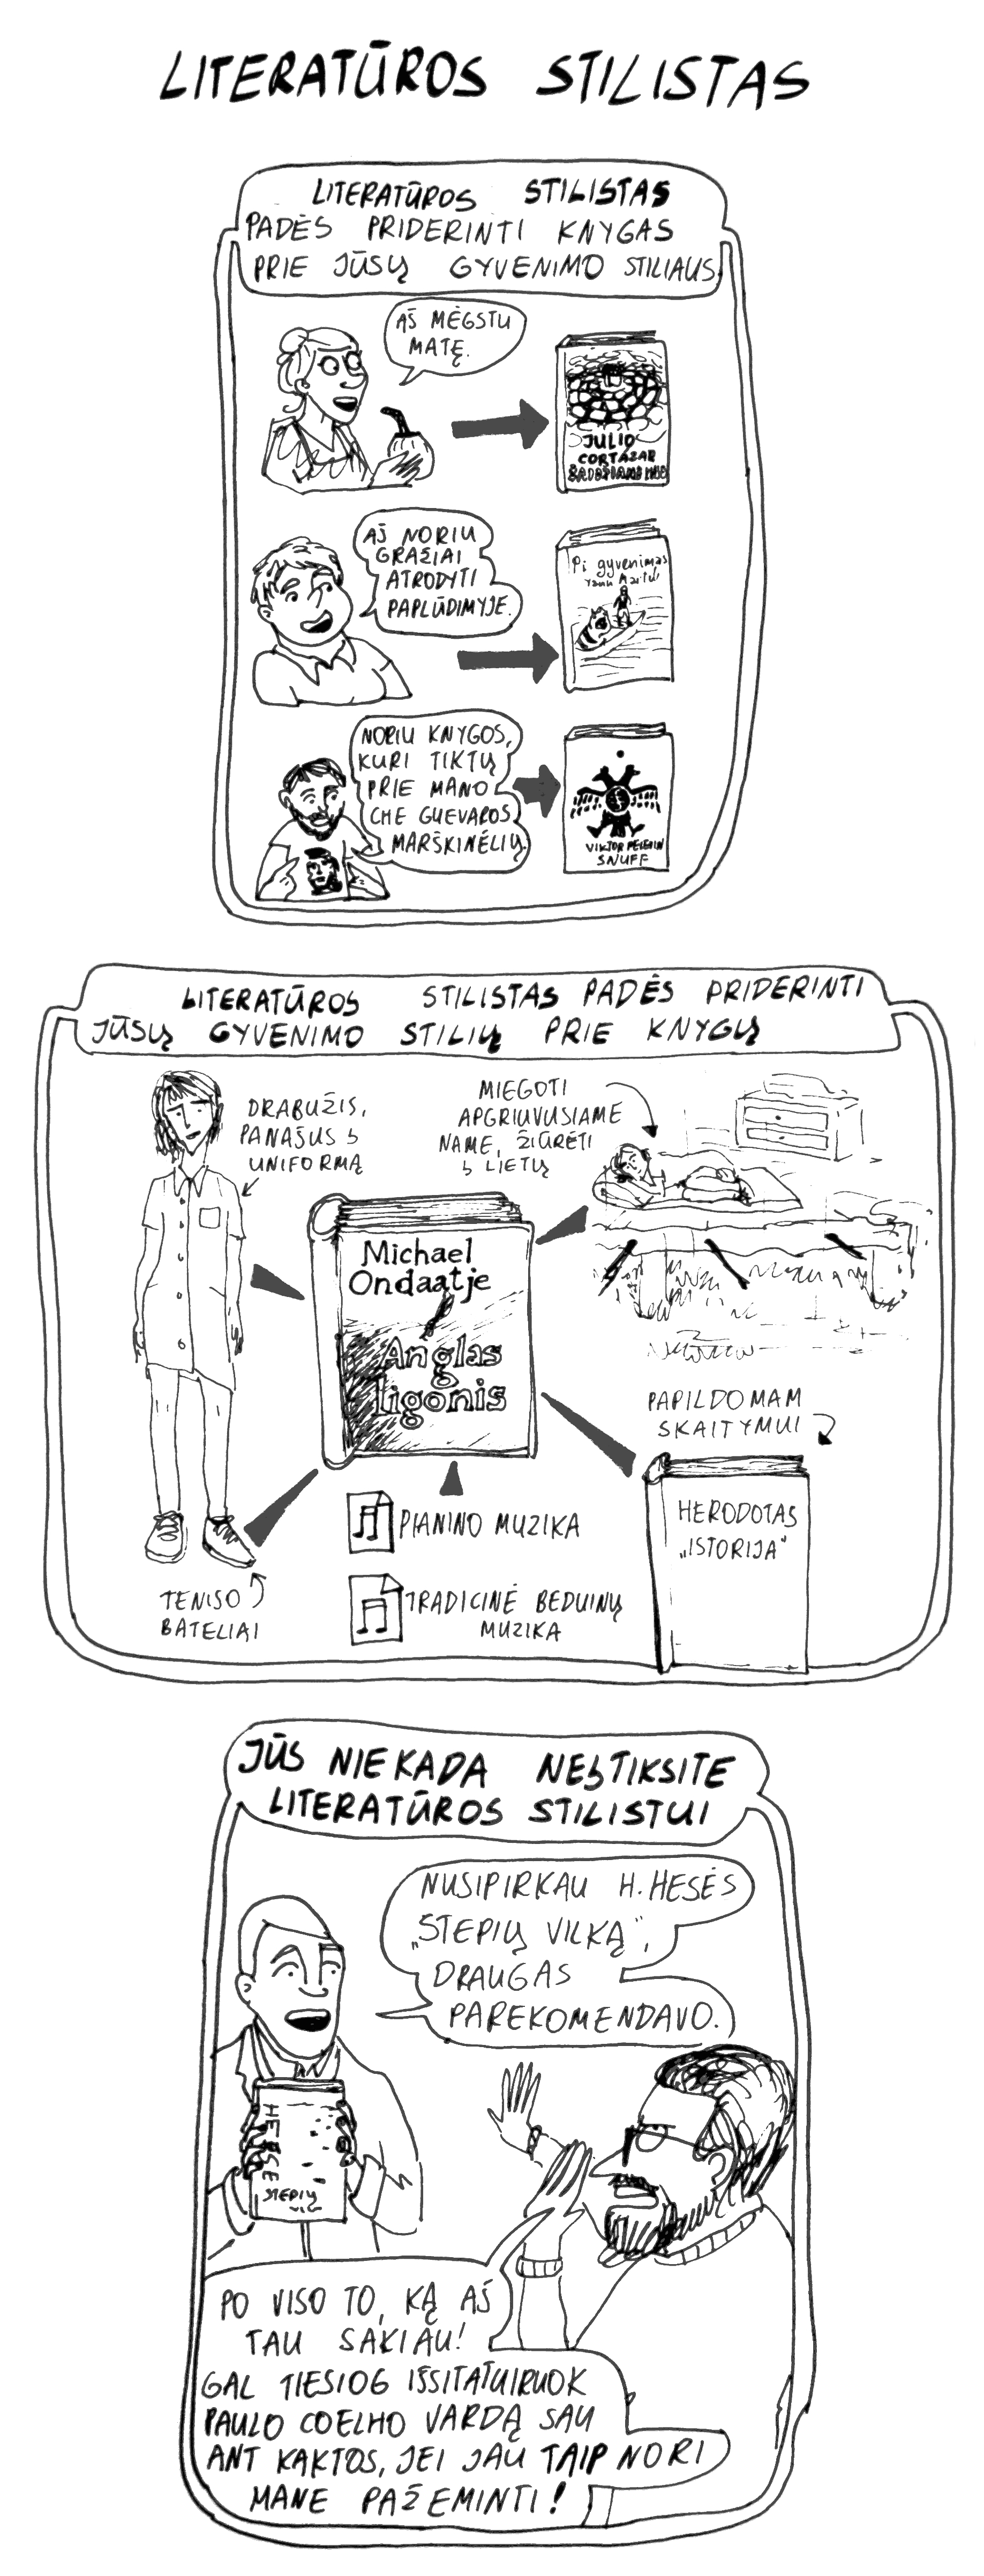 LITERATŪROS STILISTAS
LITERATŪROS STILISTAS
PADĖS PRIDERINTI KNYGAS
PRIE JŪSŲ GYVENIMO STILIAUS
AŠ MĖGSTU
MATĘ.
JULIO
CORTÁZAR
AŠ NORIU
GRAŽIAI
ATRODYTI
PAPLŪDIMYJE.
Pi gyvenimas
NORIU KNYGOS,
KURI TIKTŲ
PRIE MANO
CHE GUEVAROS
MARŠKINĖLIŲ.
VIKTOR PELEVIN
SNUFF
LITERATŪROS STILISTAS PADĖS PRIDERINTI
JŪSŲ GYVENIMO STILIŲ PRIE KNYGŲ
DRABUŽIS,
PANAŠUS Į
UNIFORMĄ
MIEGOTI
APGRIUVUSIAME
NAME, ŽIŪRĖTI
Į LIETŲ
Michael
Ondaatje
Anglas
ligonis
PAPILDOMAM
SKAITYMUI
HERODOTAS
„ISTORIJA“
PIANINO MUZIKA
TRADICINĖ BEDUINŲ
MUZIKA
TENISO
BATELIAI
JŪS NIEKADA NEĮTIKSITE
LITERATŪROS STILISTUI
NUSIPIRKAU H. HESĖS
„STEPIŲ VILKĄ“,
DRAUGAS
PAREKOMENDAVO.
HESSE
STEPIŲ
PO VISO TO, KĄ AŠ
TAU SAKIAU!
GAL TIESIOG IŠSITATUIRUOK
PAULO COELHO VARDĄ SAU
ANT KAKTOS, JEI JAU TAIP NORI
MANE PAŽEMINTI!